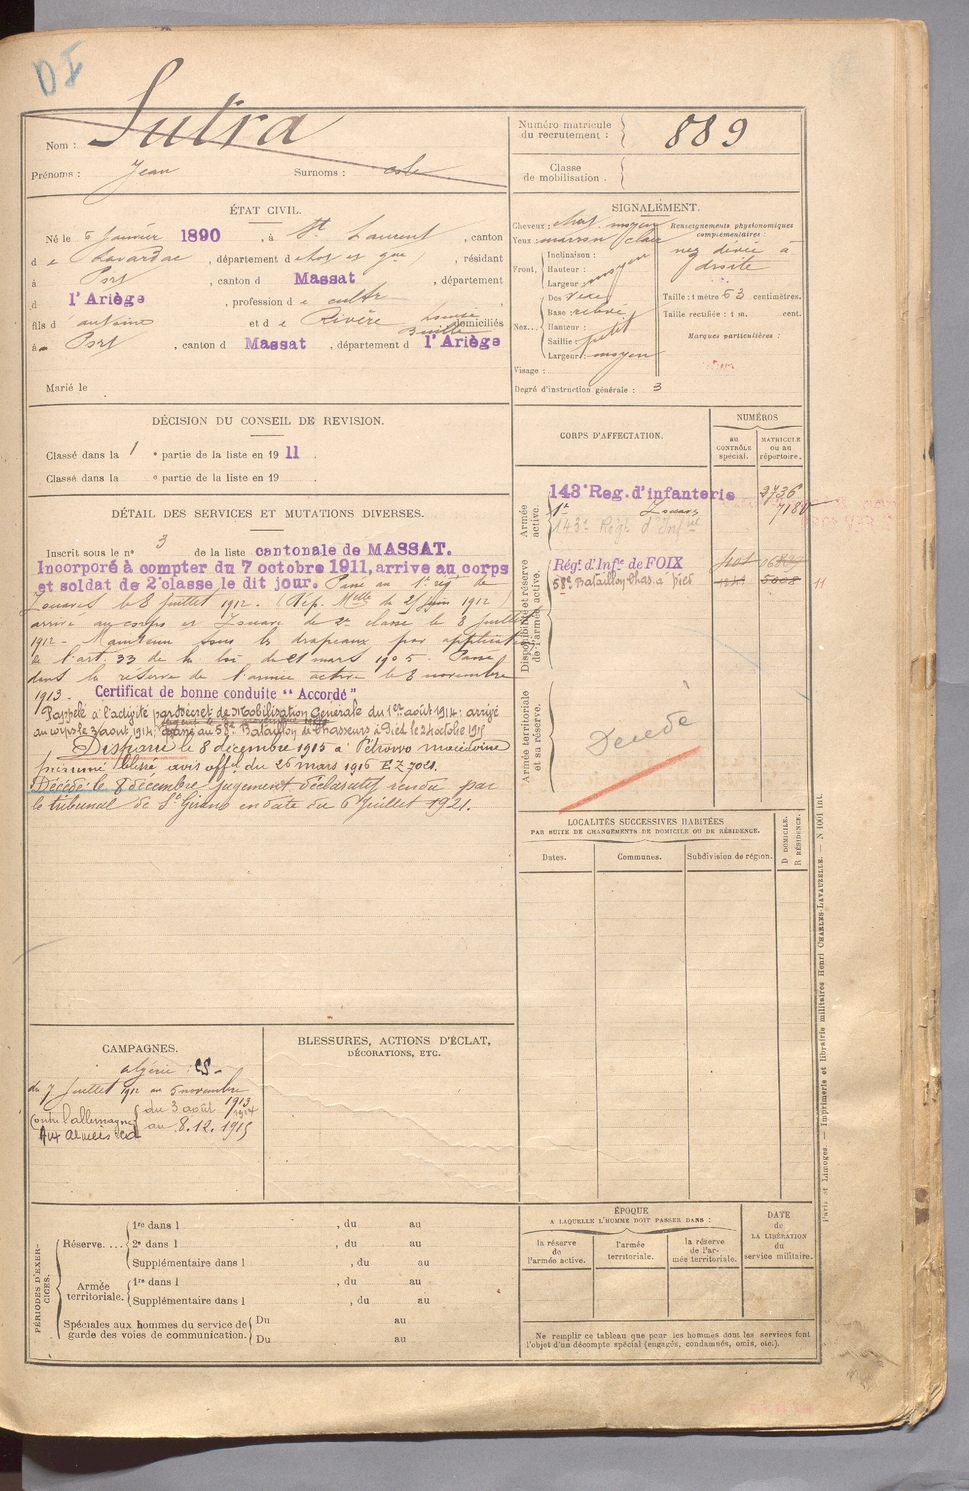 DF
Nom : Sutra
Prénoms : Jean Surnoms :
Numéro matricule du recrutement : 889
Classe de mobilisation .
ÉTAT CIVIL.
Né le 5 Janvier 1890 , à St Laurent , canton
d e Lavardac , département d , résidant
à Port , canton d Massat , département
d l'Ariège , profession d e cultr
fils d antoine et d e Rivère Louise domiciliés
à Port , canton d Massat , département d l'Ariège
Marié le
SIGNALEMENT.
Cheveux : chat. moyen
Yeux : marron clair
Front. Inclinaison :
Hauteur :
Largeur : moyen
Nez... Dos vexe
Base : relevé
Hauteur :
Saillie : petit
Largeur : moyen
Visage :
Renseignements physionomiques complémentaires :
nez dévié à droite
Taille : 1 mètre 63 centimètres.
Taille rectifiée : 1 m. cent.
Marques particulières :
Degré d'instruction générale : 3
DÉCISION DU CONSEIL DE REVISION.
Classé dans la 1 e partie de la liste en 19 11 .
Classé dans la e partie de la liste en 19 .
CORPS D'AFFECTATION.
NUMÉROS
AU CONTRÔLE spécial.
MATRICULE ou au répertoire.
Armée active.
143e Reg. d'infanterie 3736
1er Zouaves 7180
143e Régt d'Infrie
Disponibilité et réserve de l'armée active.
Régt. d'Infie de FOIX
58e Bataillon Chas. à pied 5008 11
Armée territoriale et sa réserve.
Décédé
DÉTAIL DES SERVICES ET MUTATIONS DIVERSES.
Inscrit sous le no 3 de la liste cantonale de MASSAT.
Incorporé à compter du 7 octobre 1911, arrive au corps
et soldat de 2e classe le dit jour. Passe au 1er régt de
Zouaves le 8 juillet 1912. (Dép. Melle du 25 juin 1912)
arrive au corps et Zouave de 2e classe le 8 juillet
1912 - Maintenu sous les drapeaux par application
de l'art. 33 de la loi du 21 mars 1905. Passé
dans la réserve de l'armée active le 8 novembre
1913. Certificat de bonne conduite "Accordé"
Rappelé à l'activité par décret de Mobilisation Générale du 1er août 1914; arrivé
au corps le 3 août 1914; passé au 58e Bataillon de Chasseurs à Pied le 24 octobre 1915
Disparu le 8 décembre 1915 à Pétrowo macédoine
présumé blessé avis offel du 26 mars 1916 EZ 7021.
Décédé le 8 décembre, jugement déclaratif rendu par
le tribunal de St Girons en date du 6 Juillet 1921.
LOCALITÉS SUCCESSIVES HABITÉES
PAR SUITE DE CHANGEMENTS DE DOMICILE OU DE RÉSIDENCE.
Dates. Communes. Subdivision de région. D. DOMICILE. R. RÉSIDENCE.
CAMPAGNES.
algérie : CS -
du 7 Juillet 1912 au 5 novembre 1913
Contre l'allemagne du 3 août 1914
Aux armées au 8.12.1915
BLESSURES, ACTIONS D'ÉCLAT,
DÉCORATIONS, ETC.
PÉRIODES D'EXERCICES.
Réserve.... 1re dans l , du au
2e dans l , du au
Supplémentaire dans l , du au
Armée territoriale. 1re dans l , du au
Supplémentaire dans l , du au
Spéciales aux hommes du service de garde des voies de communication. Du au
Du au
ÉPOQUE
A LAQUELLE L'HOMME DOIT PASSER DANS :
la réserve de l'armée active.
l'armée territoriale.
la réserve de l'armée territoriale.
DATE de LA LIBÉRATION du service militaire.
Ne remplir ce tableau que pour les hommes dont les services font
l'objet d'un décompte spécial (engagés, condamnés, omis, etc.).
Paris et Limoges. — Imprimerie et librairie militaires Henri CHARLES-LAVAUZELLE. — N 1001 int.